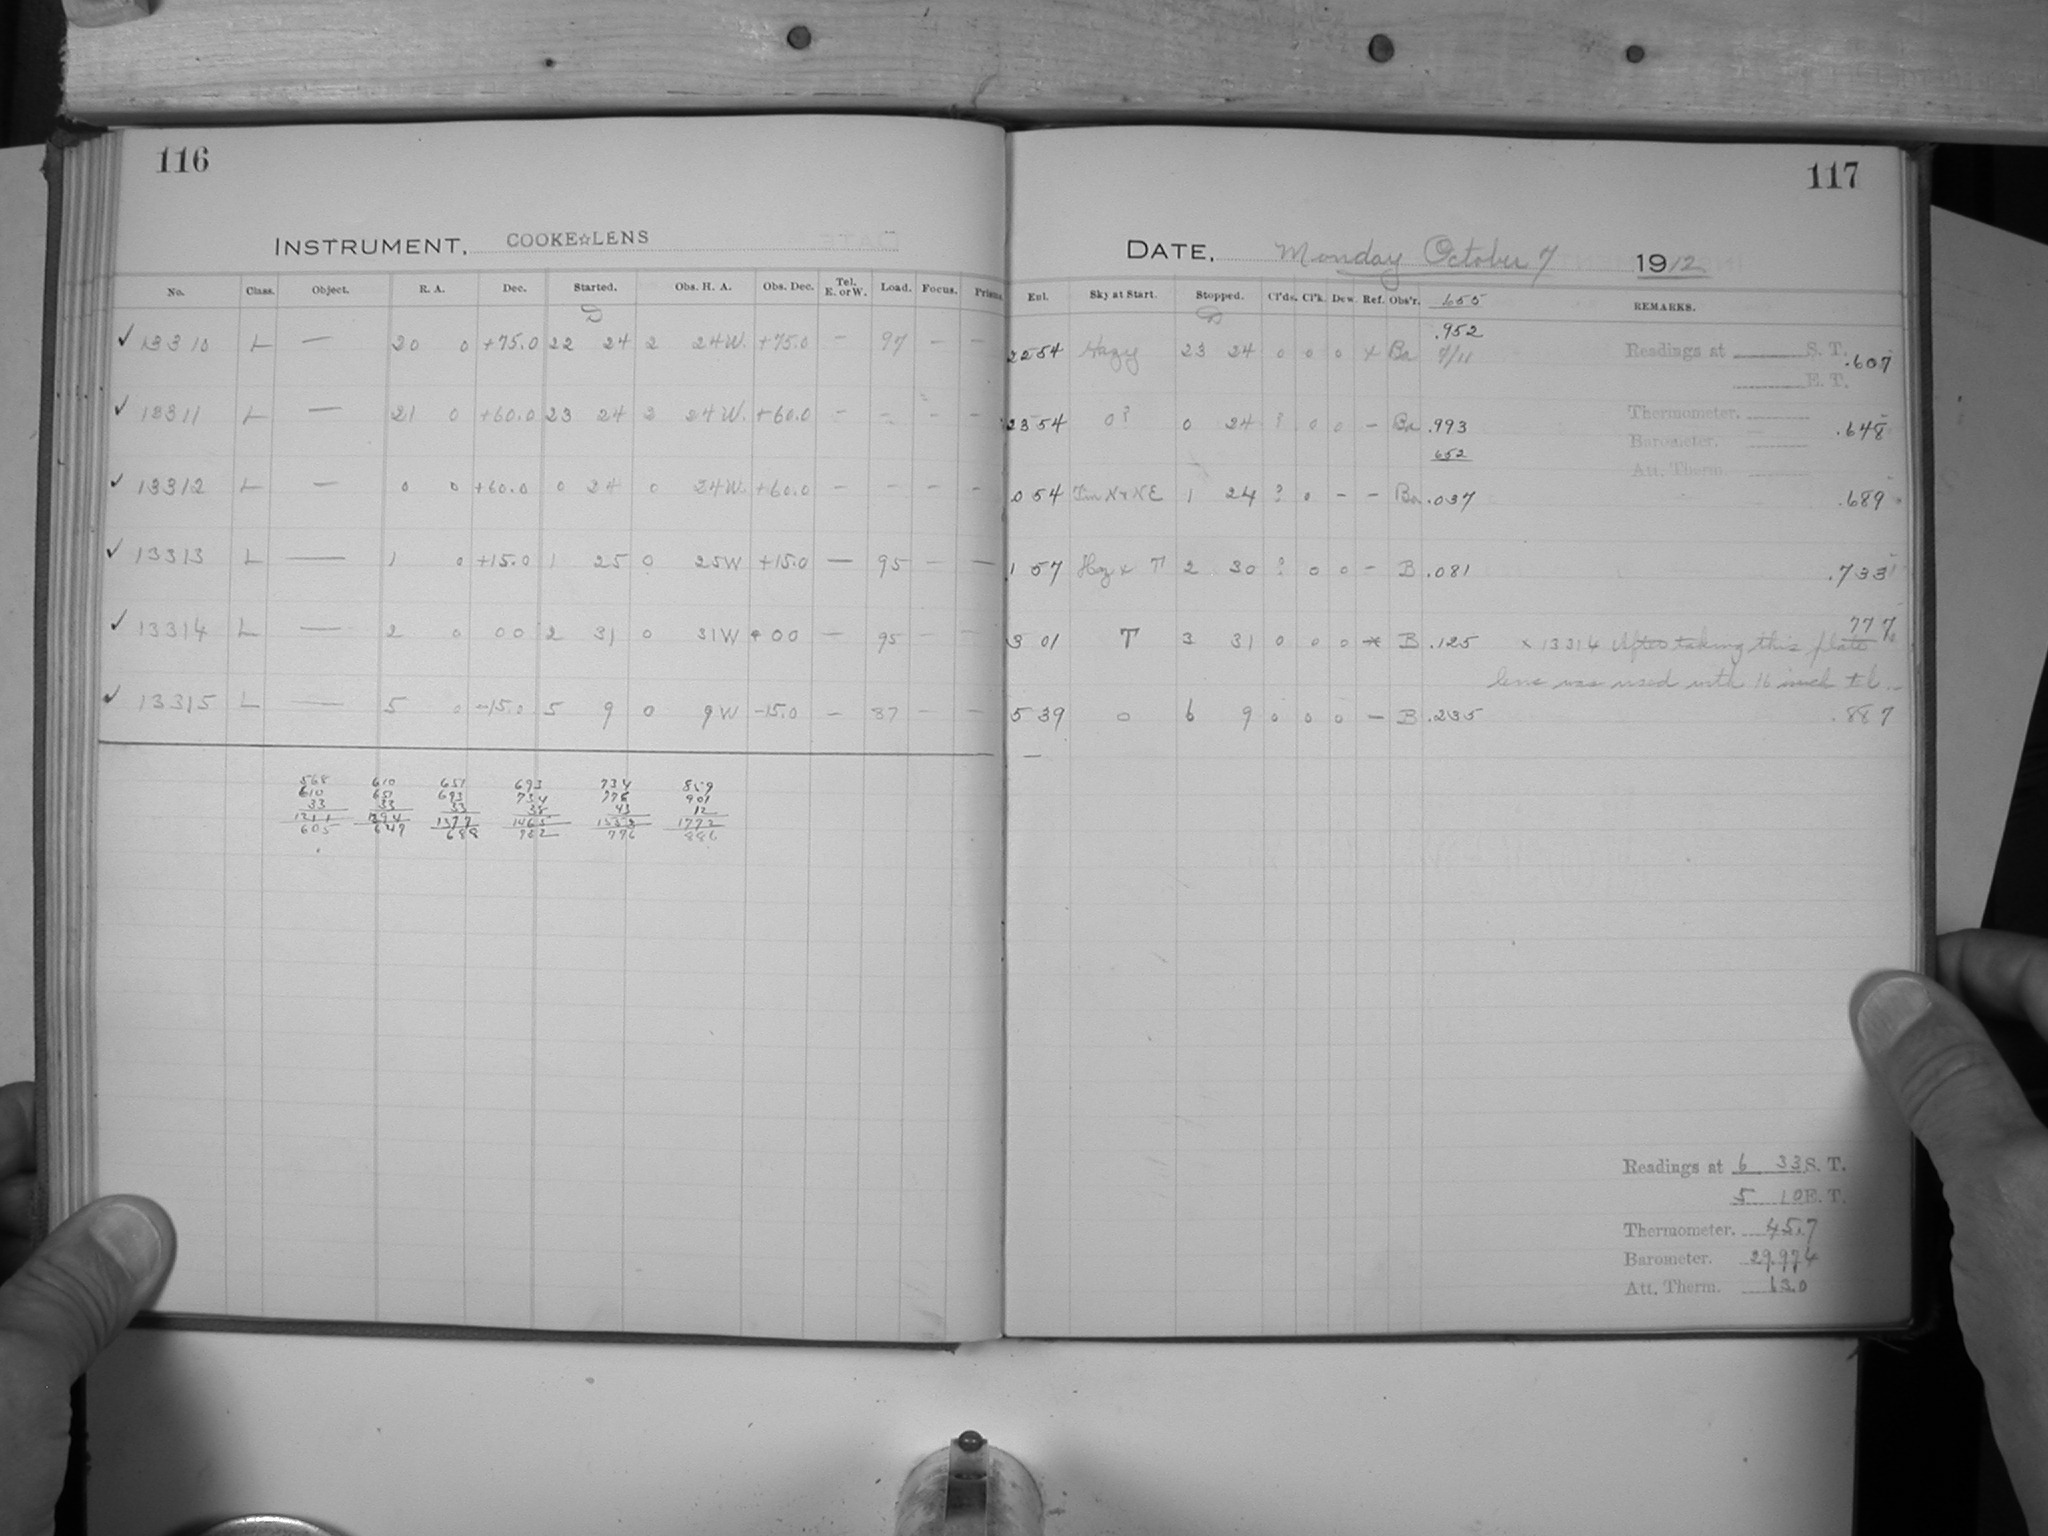 116
INSTRUMENT, COOKE☆LENS
No. Class. Object. R. A. Dec. Started. Obs. H. A. Obs. Dec. Tel. E. or W. Load. Focus. Prisms
D
✓ 13310 L — 20 0 +75.0 22 24 2 24W. +75.0 — 97 — —
✓ 13311 L — 21 0 +60.0 23 24 2 24W. +60.0 — — — —
✓ 13312 L — 0 0 +60.0 0 24 0 24W. +60.0 — — — —
✓ 13313 L — 1 0 +15.0 1 25 0 25W +15.0 — 95 — —
✓ 13314 L — 2 0 00 2 31 0 31W 00 — 95 — —
✓ 13315 L — 5 0 -15.0 5 9 0 9W -15.0 — 37 — —
568 610 651 693 734 859
610 651 693 734 776 901
33 33 33 38 43 12
1211 1294 1377 1465 1553 1772
605 647 688 732 776 886
117
DATE, Monday October 7 1912
Eql. Sky at Start. Stopped. Cl'ds. Cl'k. Dew. Ref. Obs'r. 655 REMARKS.
D
.952
22 54 Hazy 23 24 0 0 0 x Ba 7/11 Readings at S. T. .607
E. T.
Thermometer.
23 54 0? 0 24 ? 0 0 — Ba .993 .648
Barometer.
652
Att. Therm.
0 54 T in N & NE 1 24 ? 0 — — Ba .037 .689
1 57 Haz & T 2 30 ? 0 0 — B .081 .733
777
3 01 T 3 31 0 0 0 * B .125 x 13314 After taking this plate
lens was used with 16 inch
5 39 0 6 9 0 0 0 — B .235 .887
Readings at 6 33 S. T.
5 10 E. T.
Thermometer. 45.7
Barometer. 29.974
Att. Therm. 63.0